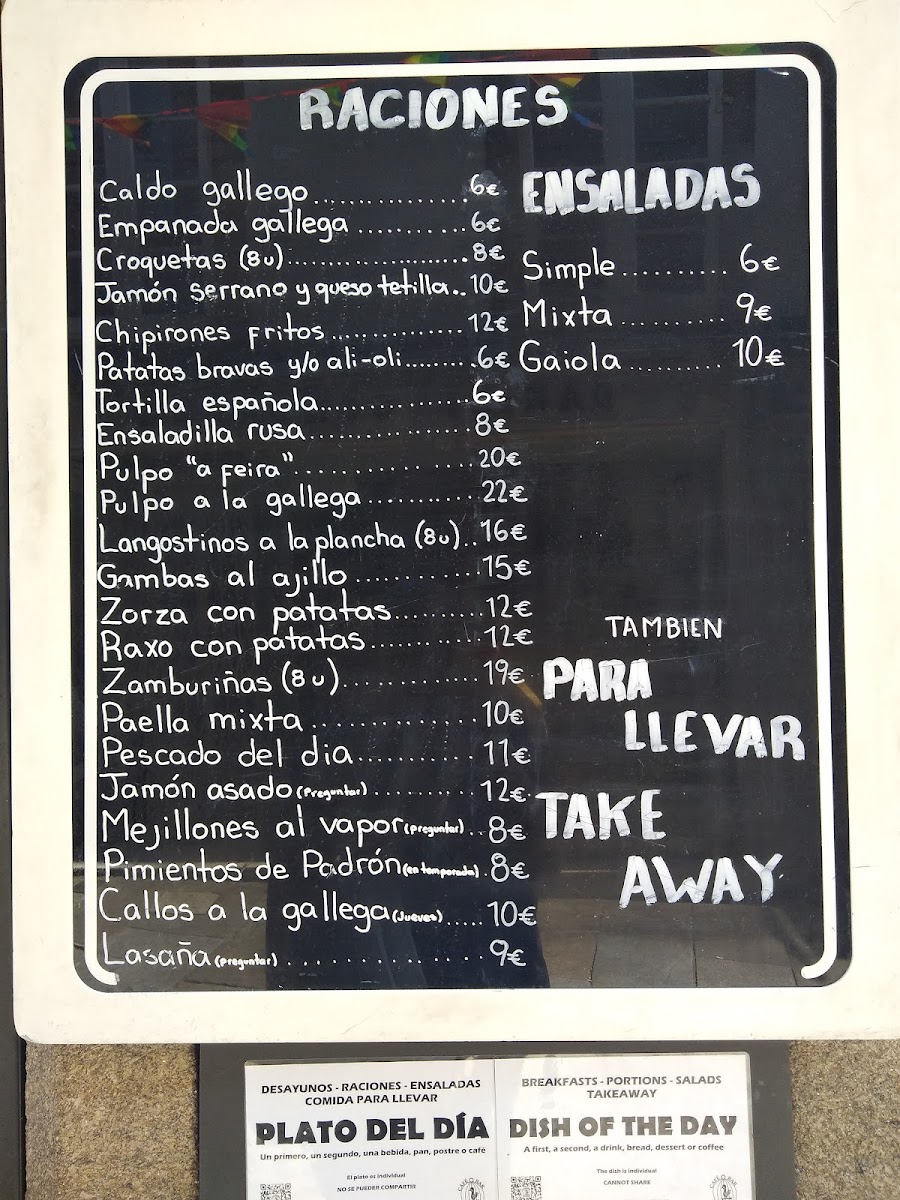 RACIONES
Caldo gallego ................ 6€
Empanada gallega ........... 6€
Croquetas (8u)..................... 8€
Jamón serrano y queso tetilla.. 10€
Chipirones fritos............... 12€
Patatas bravas y/o ali-oli........ 6€
Tortilla española................. 6€
Ensaladilla rusa................... 8€
Pulpo "a feira".................... 20€
Pulpo a la gallega ............ 22€
Langostinos a la plancha (8u).. 16€
Gambas al ajillo ............. 15€
Zorza con patatas.......... 12€
Raxo con patatas............. 12€
Zamburiñas (8u)............... 19€
Paella mixta ................... 10€
Pescado del dia............. 11€
Jamón asado (Preguntar) ............ 12€
Mejillones al vapor (preguntar) .. 8€
Pimientos de Padrón (en temporada) . 8€
Callos a la gallega (Jueves) ..... 10€
Lasaña (Preguntar) ................ 9€
ENSALADAS
Simple .......... 6€
Mixta ........... 9€
Gaiola .......... 10€
TAMBIEN
PARA
LLEVAR
TAKE
AWAY
DESAYUNOS - RACIONES - ENSALADAS
COMIDA PARA LLEVAR
PLATO DEL DÍA
Un primero, un segundo, una bebida, pan, postre o café
El plato es individual
NO SE PUEDEN COMPARTIR
BREAKFASTS - PORTIONS - SALADS
TAKEAWAY
DISH OF THE DAY
A first, a second, a drink, bread, dessert or coffee
The dish is individual
CANNOT SHARE